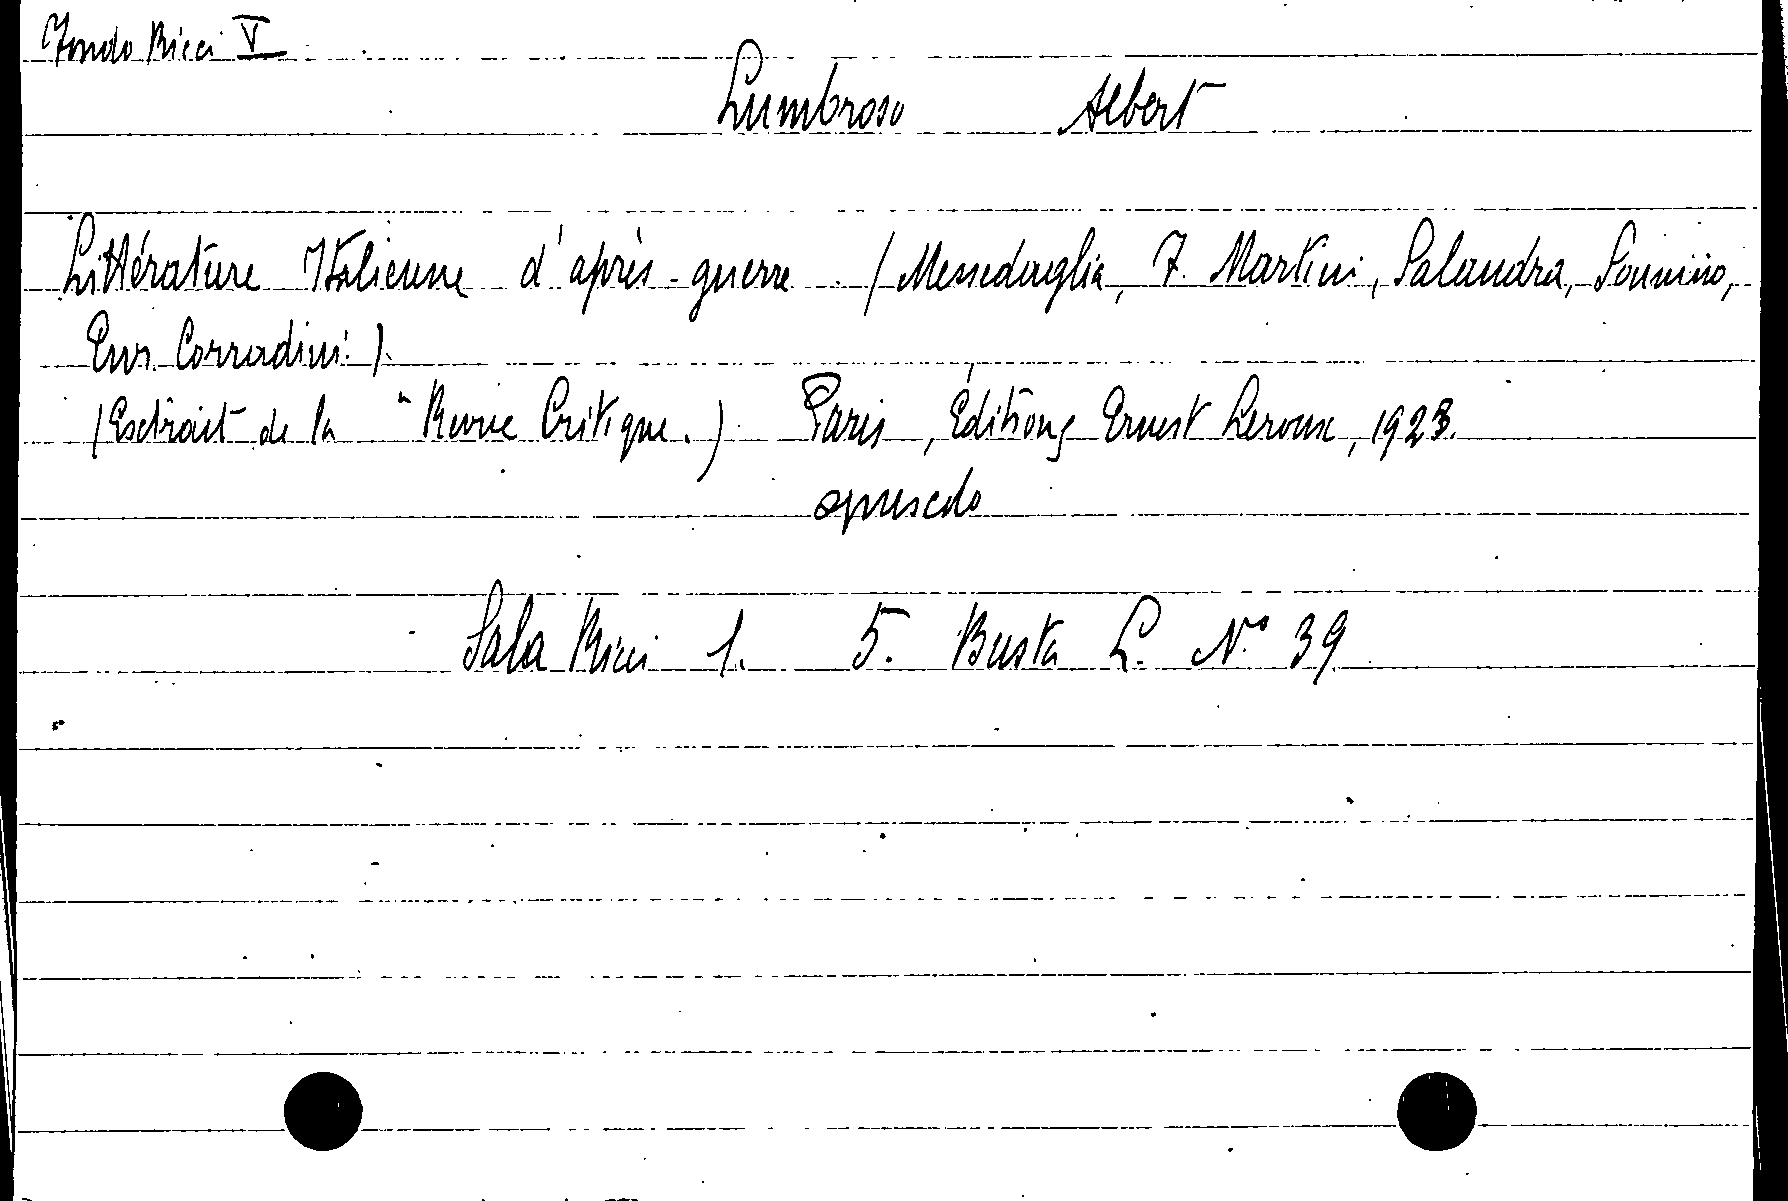 Fondo Ricci V
Lumbroso Albert
Littérature Italienne d'après-guerre (Messedaglia, F. Martini, Salandra, Sonnino,
Enr. Corradini.)
(Esctrait de la "Revue Critique.) Paris, Éditions Ernest Leroux, 1923.
opuscolo
Sala Ricci 1. 5. Busta L. N° 39